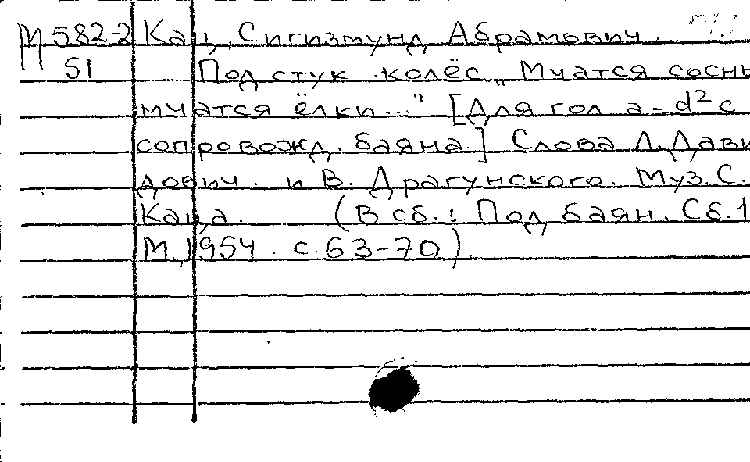 М 582-2 Кац, Сигизмунд Абрамович.
51 Под стук колёс „Мчатся сосны
мчатся ёлки..." [Для гол a-d²c
сопровожд. баяна.] Слова Л. Дави
дович. и В. Драгунского. Муз. С.
Каца. (В сб.: Под баян. Сб.1
М, 1954. с 63-70)